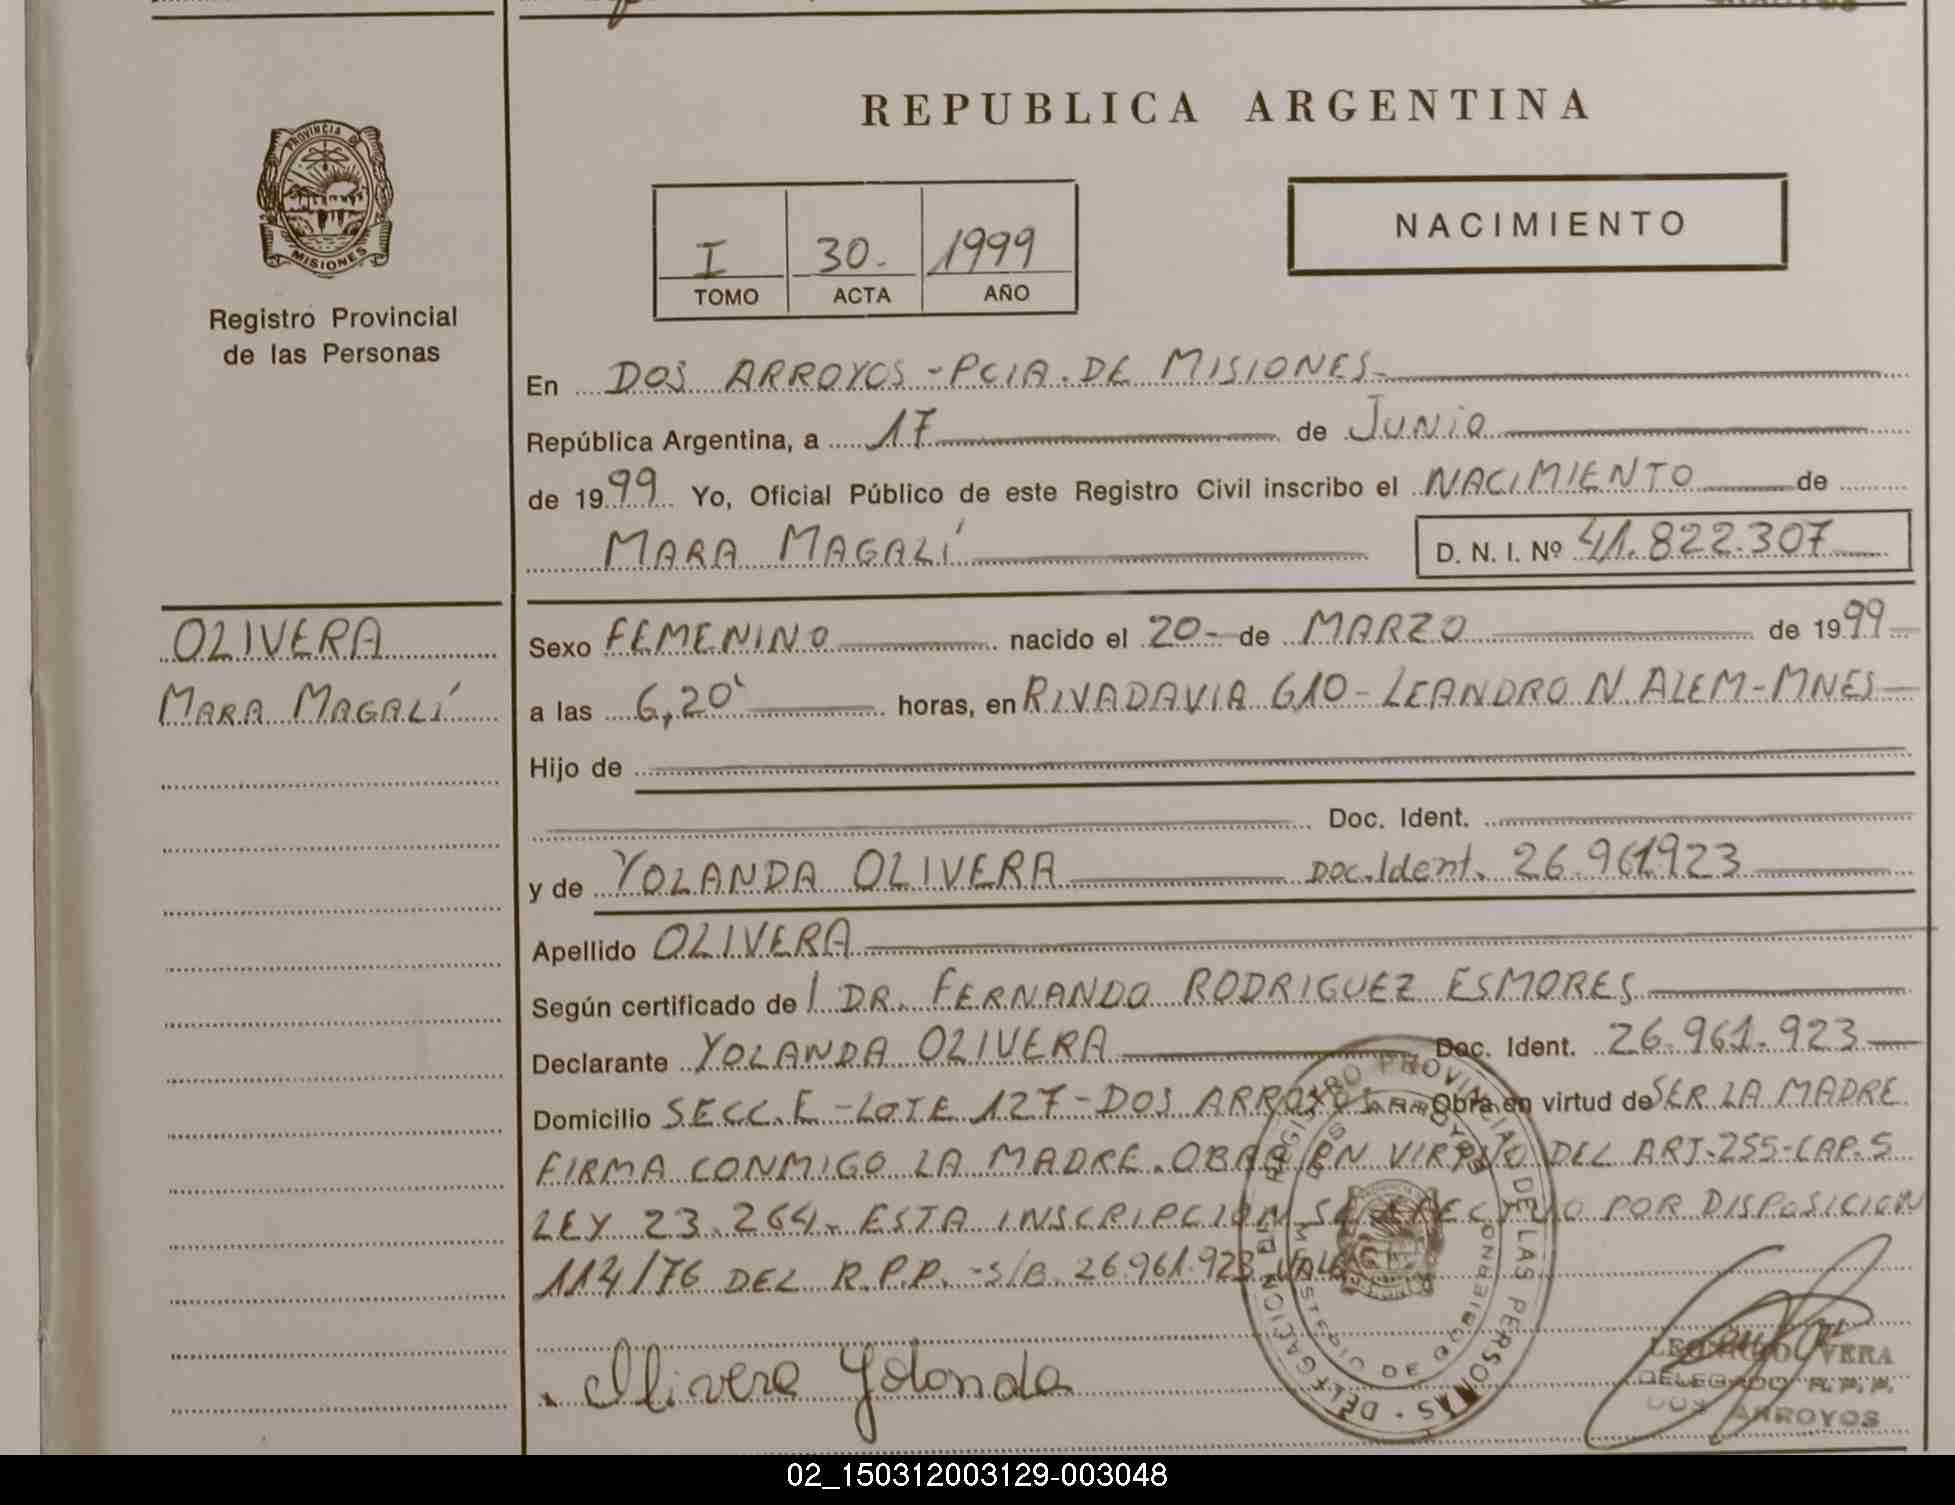 PROVINCIA DE
MISIONES
Registro Provincial
de las Personas
OLIVERA
MARA MAGALÍ
REPUBLICA ARGENTINA
I 30. 1999
TOMO ACTA AÑO
NACIMIENTO
En DOS ARROYOS - PCIA. DE MISIONES
República Argentina, a 17 de JUNIO
de 1999 Yo, Oficial Público de este Registro Civil inscribo el NACIMIENTO de
MARA MAGALÍ D. N. I. Nº 41.822.307
Sexo FEMENINO nacido el 20- de MARZO de 1999
a las 6,20' horas, en RIVADAVIA 610 - LEANDRO N. ALEM - MNES
Hijo de
Doc. Ident.
y de YOLANDA OLIVERA Doc. Ident. 26.961923
Apellido OLIVERA
Según certificado de l DR. FERNANDO RODRIGUEZ ESMORES
Declarante YOLANDA OLIVERA Doc. Ident. 26.961.923
Domicilio SECC. E - LOTE 127 - DOS ARROYOS Obra en virtud de SER LA MADRE
FIRMA CONMIGO LA MADRE. OBRA EN VIRTUD DEL ART. 255 - CAP. 5
LEY 23.264. ESTA INSCRIPCION SE EFECTUO POR DISPOSICION
114/76 DEL R.P.P. - S/B. 26.961.923 VALE
Olivera Yolanda
REGISTRO PROVINCIAL DE LAS PERSONAS - DELEGACION
DOS ARROYOS
MINISTERIO DE GOBIERNO
VERA
DELEGADO R. P. P.
DOS ARROYOS
02_150312003129-003048